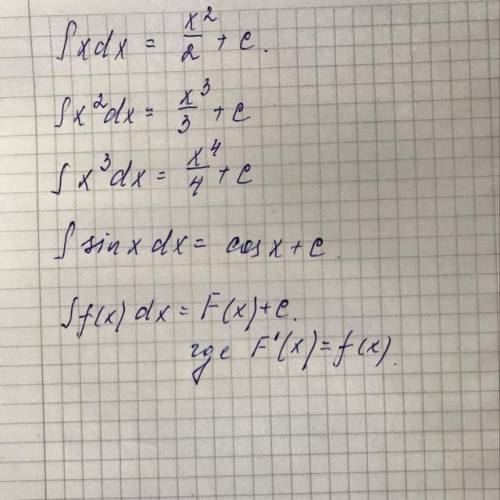 ∫xdx = x²/2 + c.
∫x²dx = x³/3 + c
∫x³dx = x⁴/4 + c
∫sinx dx = cosx + c.
∫f(x) dx = F(x) + c.
где F'(x) = f(x).